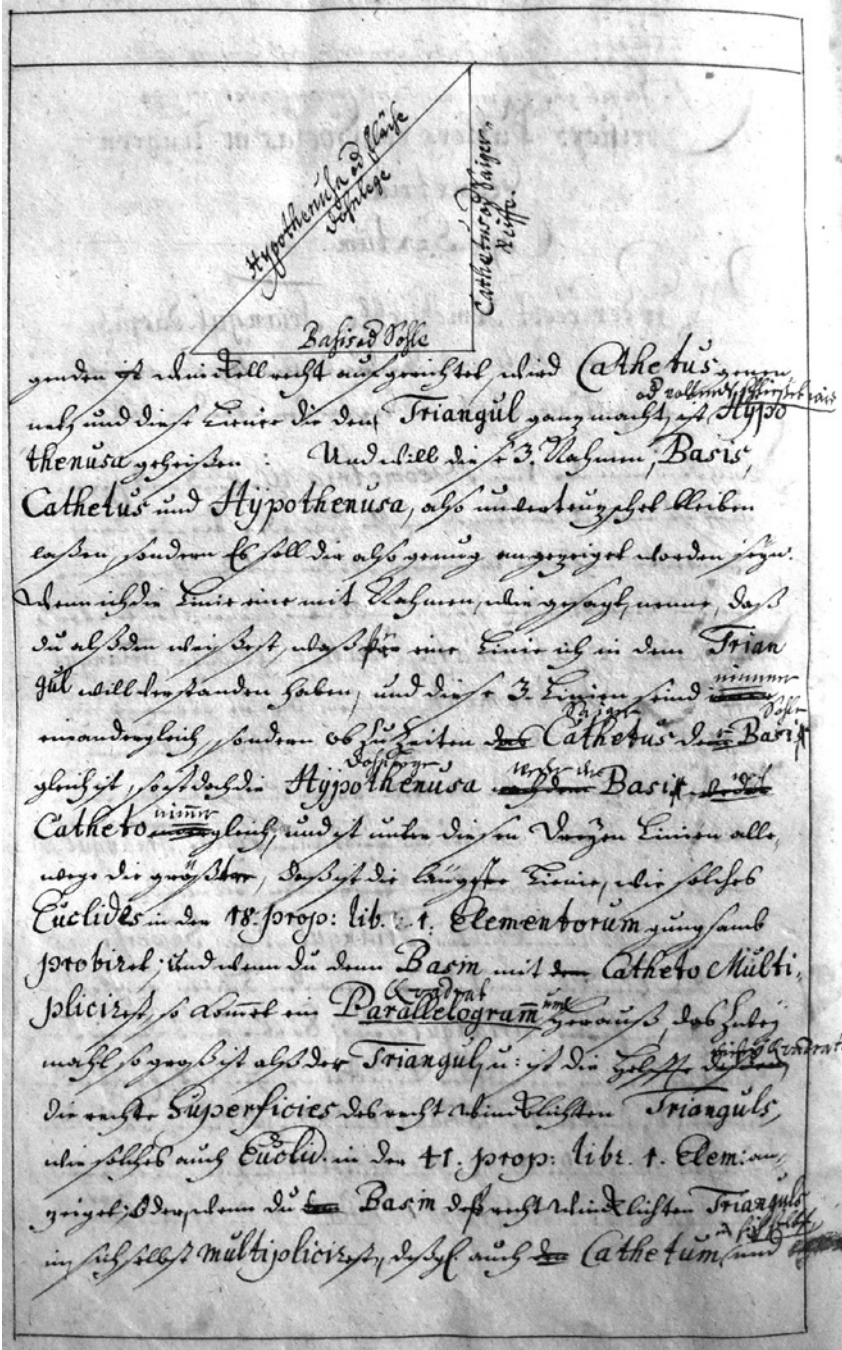 Hypothenusa od flache
Dohnlege
Cathetus od Saiger
Teüffe.
Basis od Sohle
genden ist winckellrecht aufgerichtet, wird Cathetus genen
od vollends schließet wird
net, und diese Linie die den Triangul ganz macht, ist Hypo
thenusa geheißen: Und will diese 3. Nahmen, Basis,
Cathetus und Hypothenusa, also unverteutzschet bleiben
laßen, sondern Es soll dir also genug angezeiget worden seyn.
Wenn ich die Linie eine mit Nahmen, wie gesagt, nenne, daß
du alßden weißest, waß für eine Linie ich in dem Trian
gul will verstanden haben, und diese 3. Linien seind
nimmer
einander gleich, sondern ob zu Zeiten Cathetus Basi
Saiger
Sohle
gleich ist, so ist doch die Hypothenusa Basi
Dohnlege
weder der
Catheto gleich, und ist unter diesen Dreyen Linien alle,
nimer
wege die größte, daß ist die längste Linie, wie solches
Euclides in der 18. prop: lib. 1. Elementorum gungsamb
probiret; Und wenn du denn Basin mit Catheto Multi,
plicirest, so kommet ein Parallelogram heraus, das zwey
Quadrat
mahl so groß ist alß der Triangul, u: ist die Helffte
Quadrat
die rechte Superficies des recht Wincklichten Trianguls,
wie solches auch Euclid. in der 41. prop: libr. 1. Elem: an,
zeiget; Oder, wenn du Basin deß recht Wincklichten Trianguls
in sich selbst multiplicirest, deßgl auch Cathetum, und
in sich selbst